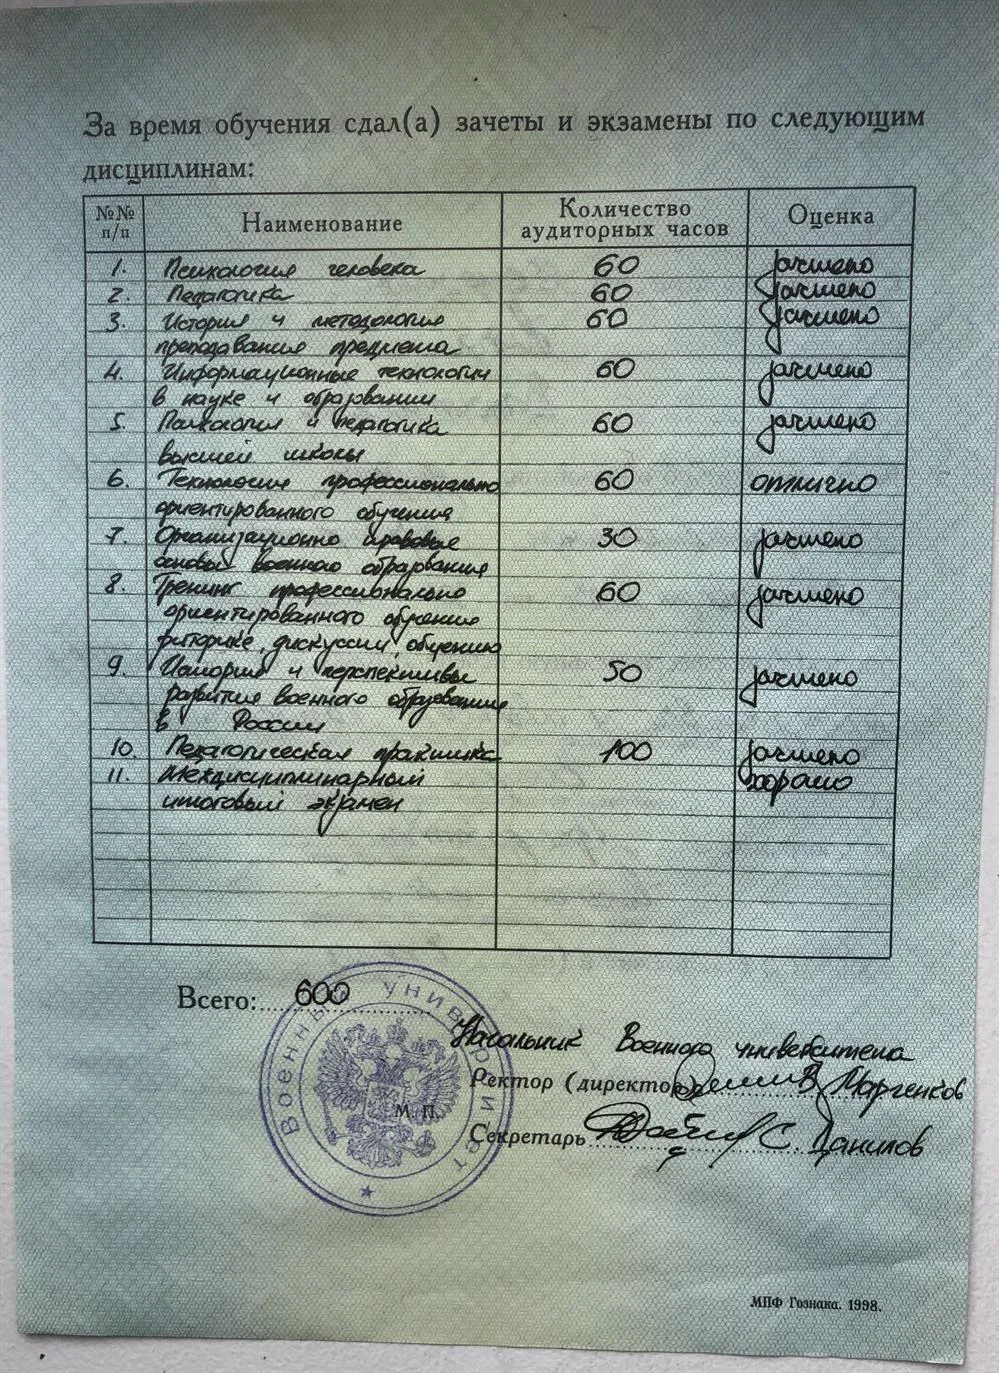 За время обучения сдал(а) зачеты и экзамены по следующим
дисциплинам:
№№ п/п Наименование Количество аудиторных часов Оценка
1. Психология человека 60 зачтено
2. Педагогика 60 зачтено
3. История и методология 60 зачтено
преподавания предмета
4. Информационные технологии 60 зачтено
в науке и образовании
5. Психология и педагогика 60 зачтено
высшей школы
6. Технология профессионально 60 отлично
ориентированного обучения
7. Организационно правовые 30 зачтено
основы военного образования
8. Тренинг профессионально 60 зачтено
ориентированного обучения
риторике, дискуссии, общению
9. История и перспективы 50 зачтено
развития военного образования
в России
10. Педагогическая практика 100 зачтено
11. Междисциплинарный хорошо
итоговый экзамен
Всего: 600
Начальник Военного университета
Ректор (директор) В Марченков
Секретарь С. Данилов
М. П.
Военный университет
МПФ Гознака. 1998.